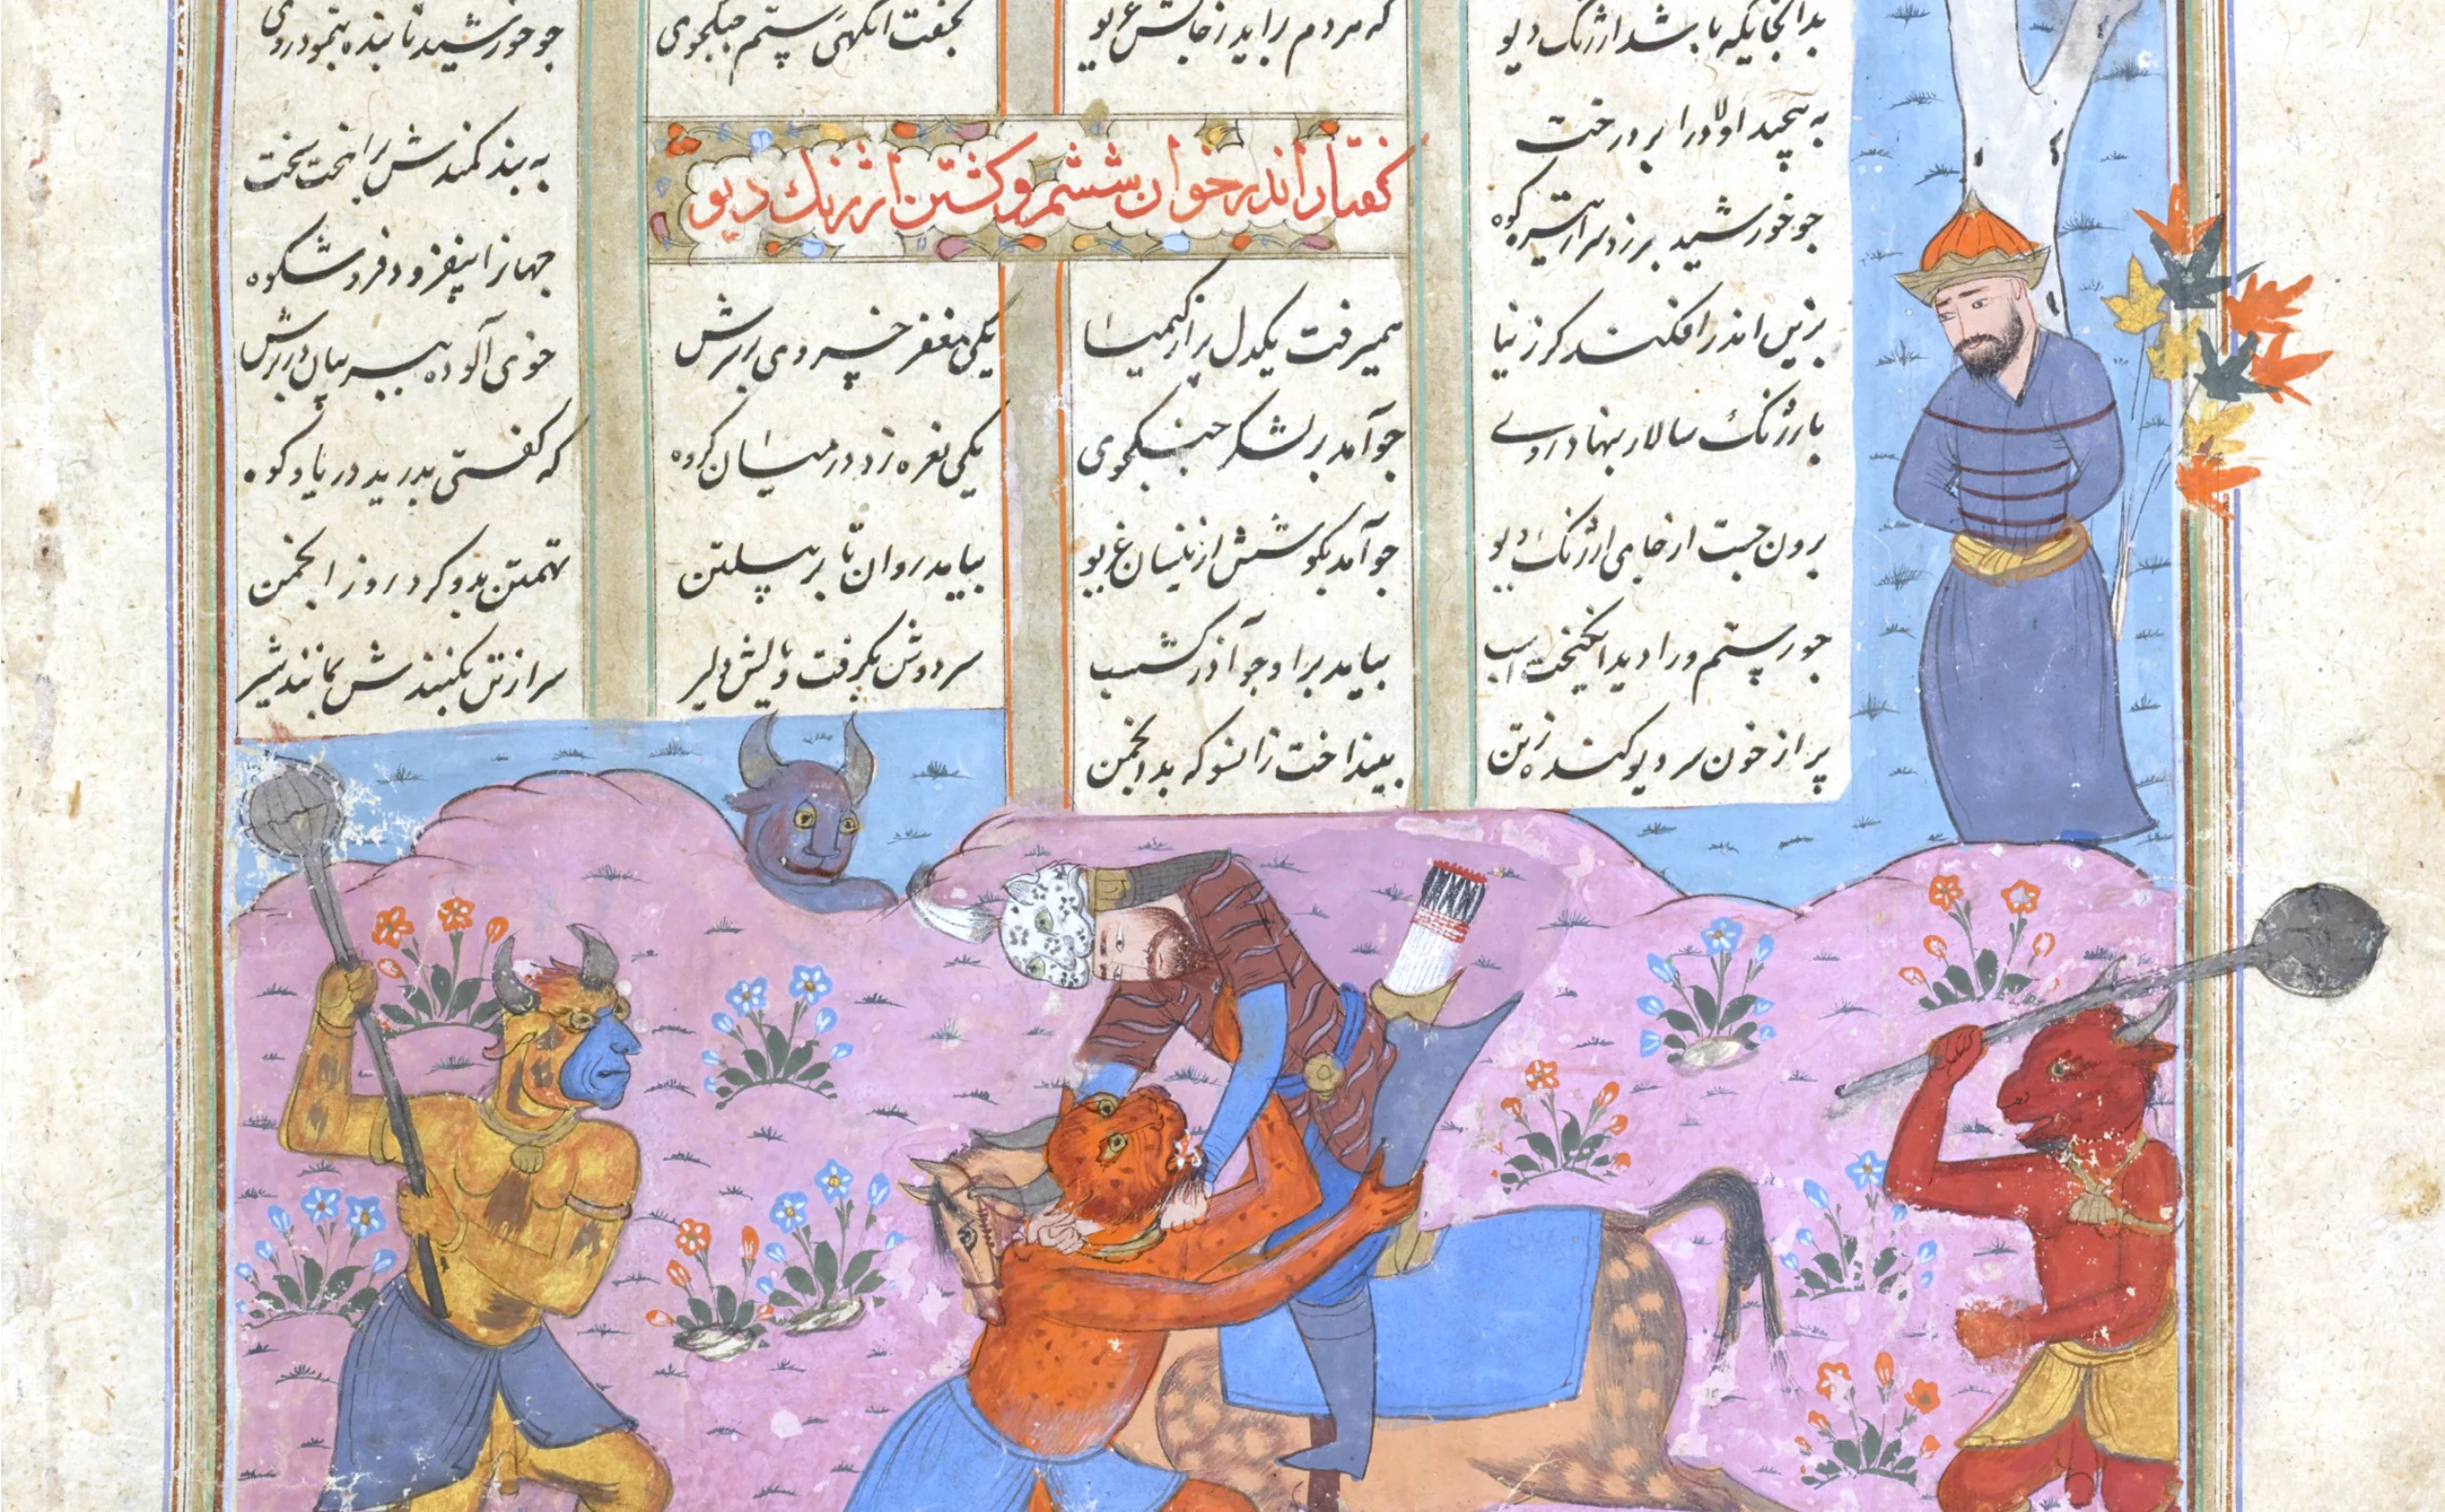 بدانجایگه باشد ارژنگ دیو که هر دم برآید زجانش غریو بخفت آنگهی رستم جنگجوی جو خورشید تابنده بنمود روی
به پیچید اولاد را بر درخت به بند کمندش سخت
جو خورشید برزد سر از تیره کوه جهانرا بیفزود فر و شکوه
گفتار اندر خوان ششم و کشتن ارژنگ دیو
بزین اندر افکند گرز نیا همیرفت یکدل پر از کیمیا یکی مغفر خسروی بر سرش خوی آلوده ببر بیان در برش
بارژنگ سالار بنهاد روی جو آمد بر لشکر جنگجوی یکی نعره زد در میان گروه که گفتی بدرید دریا و کوه
برون جست از جای ارژنگ دیو جو آمد بگوشش ازینسان غریو بیامد روان تا بر پیلتن تهمتن بدو کرد روز انجمن
جو رستم ورا دید انگیخت اسب بیامد بر او جو آذرگشسب سر و دوش بگرفت و یالش دلیر سر از تن بکندش بمانند شیر
پر از خون سر دیو کنده ز تن بینداخت زانسو که بد انجمن